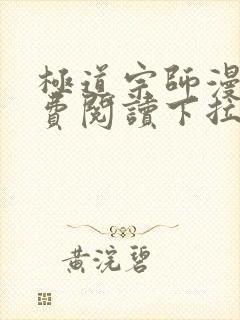 極道宗師漫
費閱讀下拉
黃浣碧